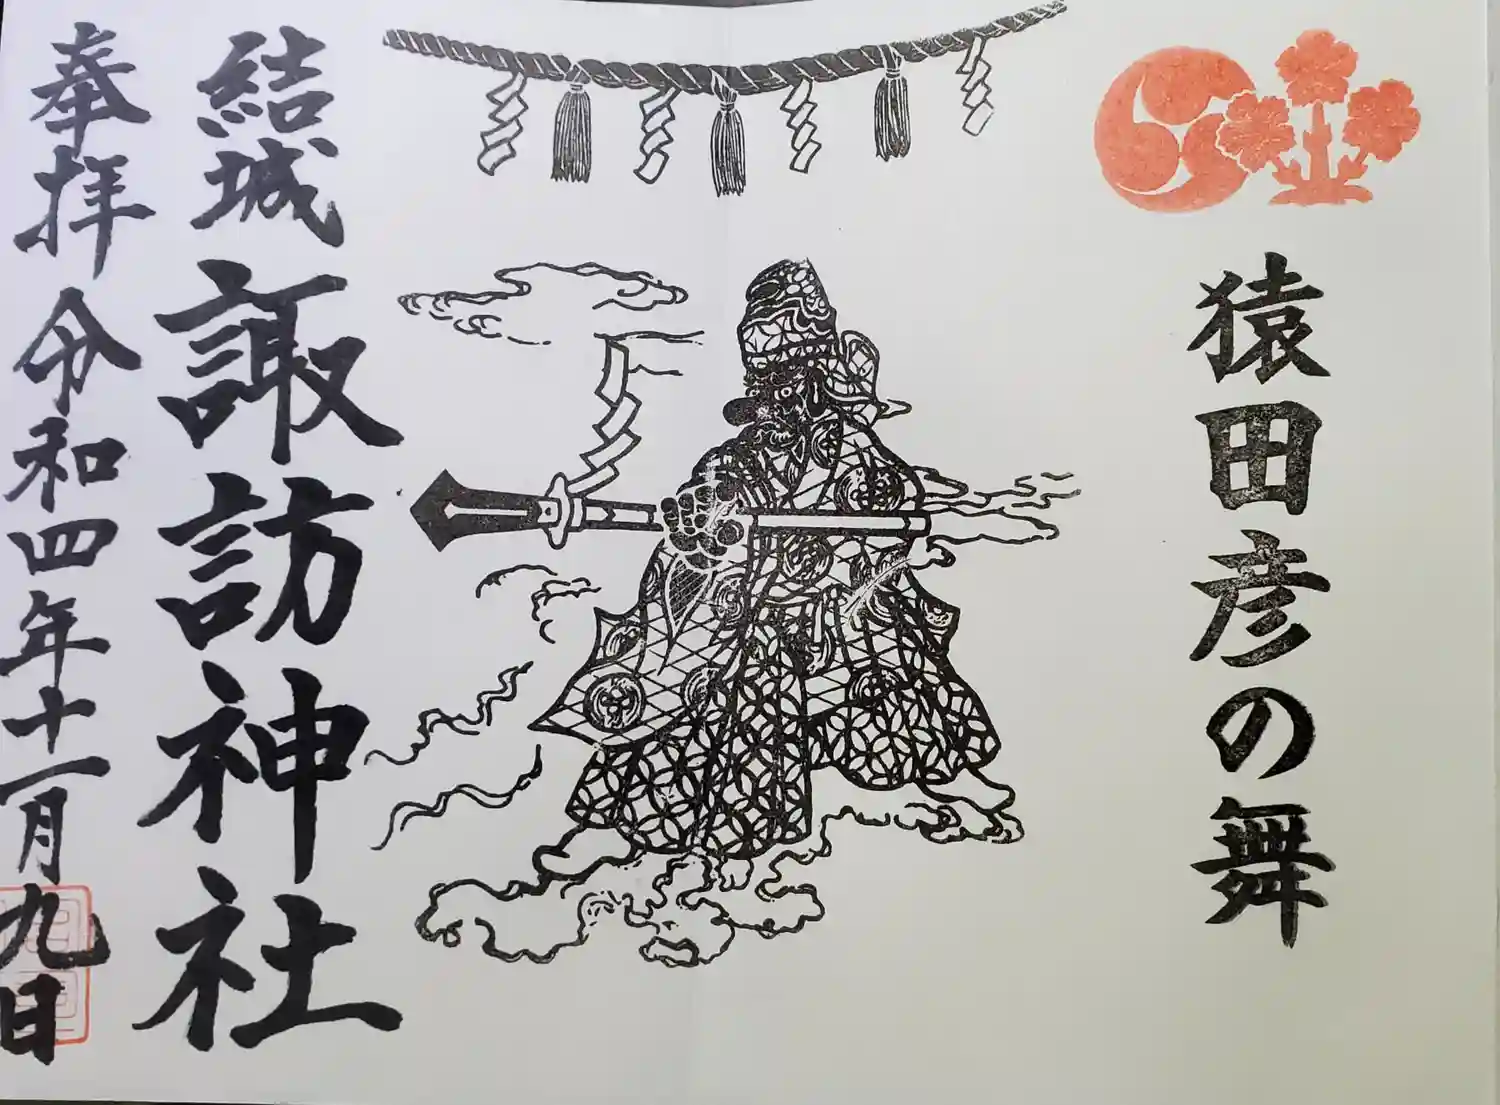 猿田彦の舞
結城諏訪神社
奉拝 令和四年十一月九日